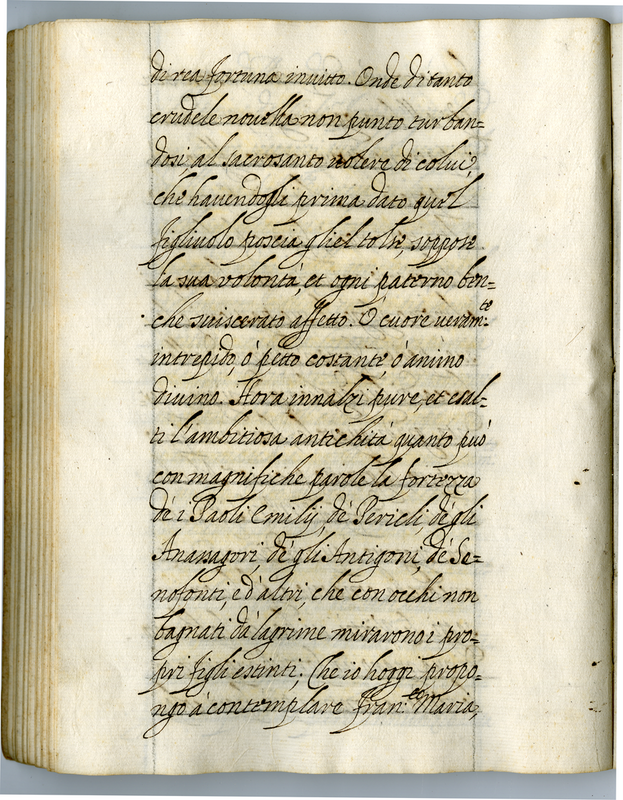 di rea fortuna invitto. Onde di tanto
crudele novella non punto turban=
dosi, al sacrosanto volere di colui,
che havendogli prima dato quel
figlivolo poscia gliel tolse, soppose
la sua volontà, et ogni paterno ben=
che sviscerato affetto. O cuore veram:te
intrepido, ò petto costante, ò animo
divino. Hora innalzi pure, et esal=
ti l'ambitiosa antichità quanto può
con magnifiche parole la fortezza
dè i Paoli Emilij, dè Pericli, dè gli
Anassagori, dè gli Antigoni, dè Se=
nofonti, e d'altri, che con occhi non
bagnati dà lagrime mirarono i pro=
pri figli estinti; Che io hoggi propo=
ngo à contemplare Fran:co Maria,